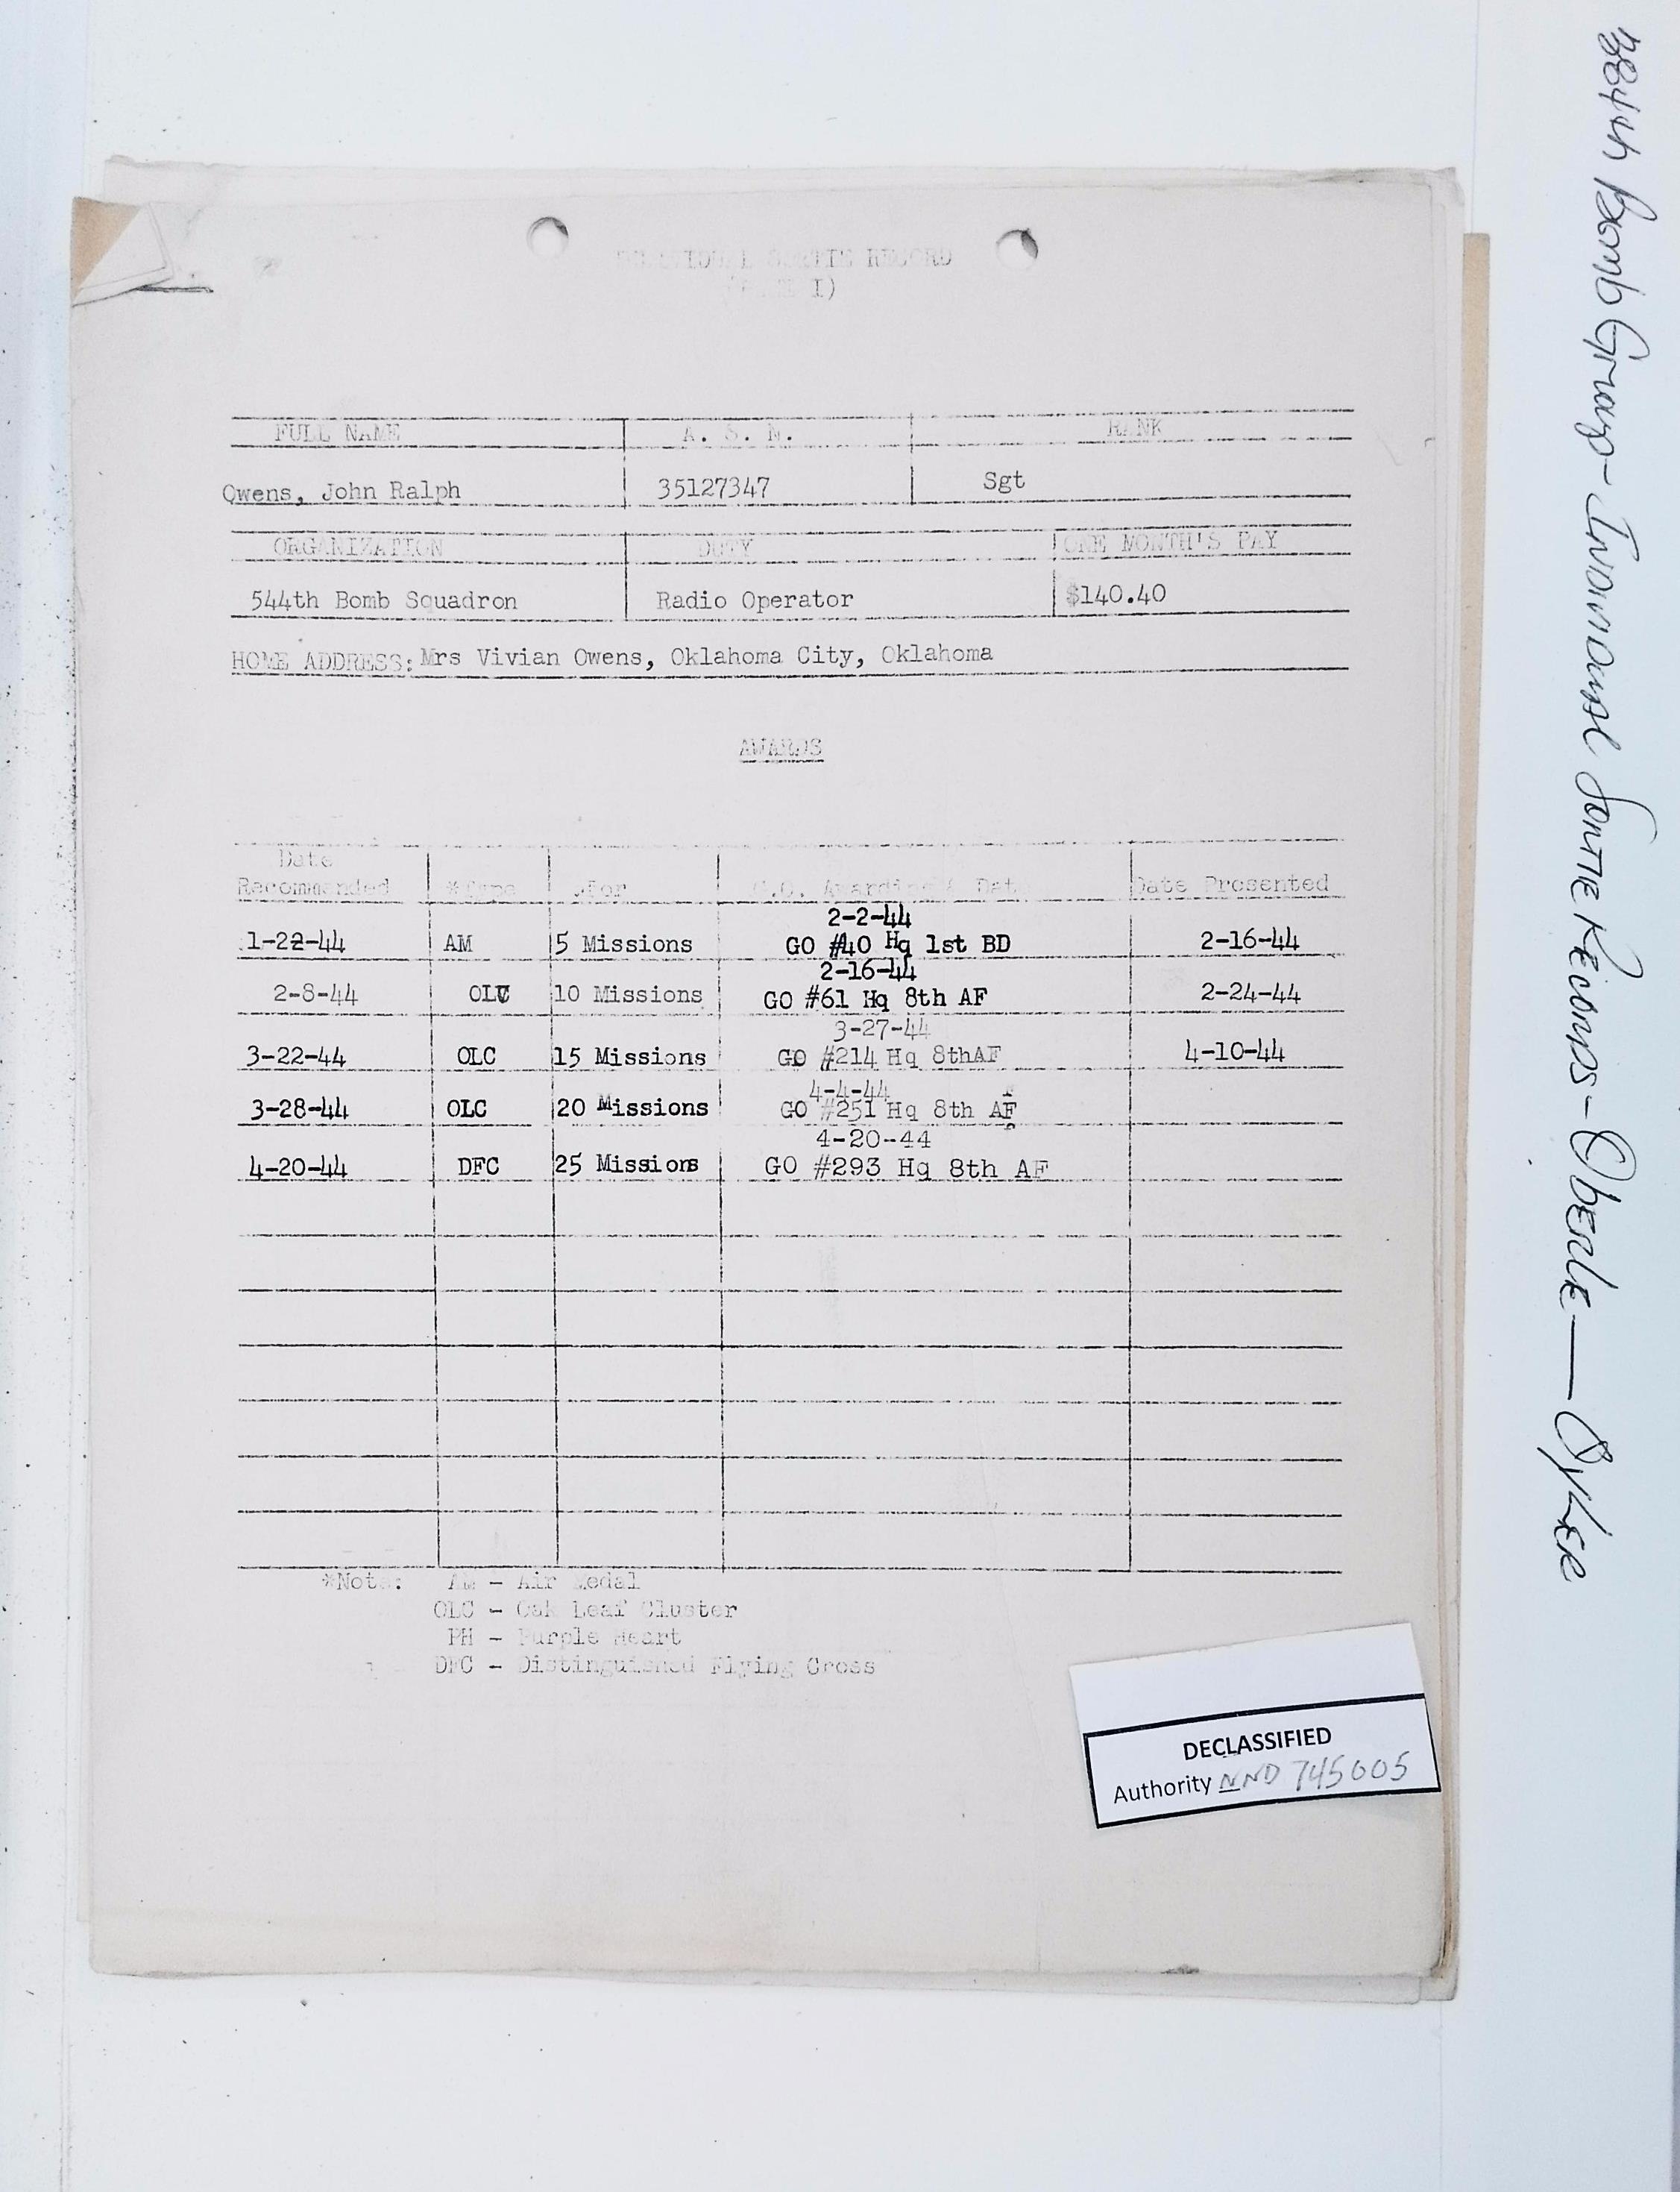 INDIVIDUAL SORTIE RECORD
(PART I)
FULL NAME A. S. N. RANK
Owens, John Ralph 35127347 Sgt
ORGANIZATION DUTY ONE MONTH'S PAY
544th Bomb Squadron Radio Operator $140.40
HOME ADDRESS: Mrs Vivian Owens, Oklahoma City, Oklahoma
AWARDS
Date
Recommended *Type For G.O. Awarding & Date Date Presented
2-2-44
1-22-44 AM 5 Missions GO #40 Hq 1st BD 2-16-44
2-16-44
2-8-44 OLC 10 Missions GO #61 Hq 8th AF 2-24-44
3-27-44
3-22-44 OLC 15 Missions GO #214 Hq 8thAF 4-10-44
4-4-44
3-28-44 OLC 20 Missions GO #251 Hq 8th AF
4-20-44
4-20-44 DFC 25 Missions GO #293 Hq 8th AF
*Note: AM - Air Medal
OLC - Oak Leaf Cluster
PH - Purple Heart
DFC - Distinguished Flying Cross
DECLASSIFIED
Authority NND 745005
384th Bomb Group - Individual Sortie Records - Oberle — Oyler